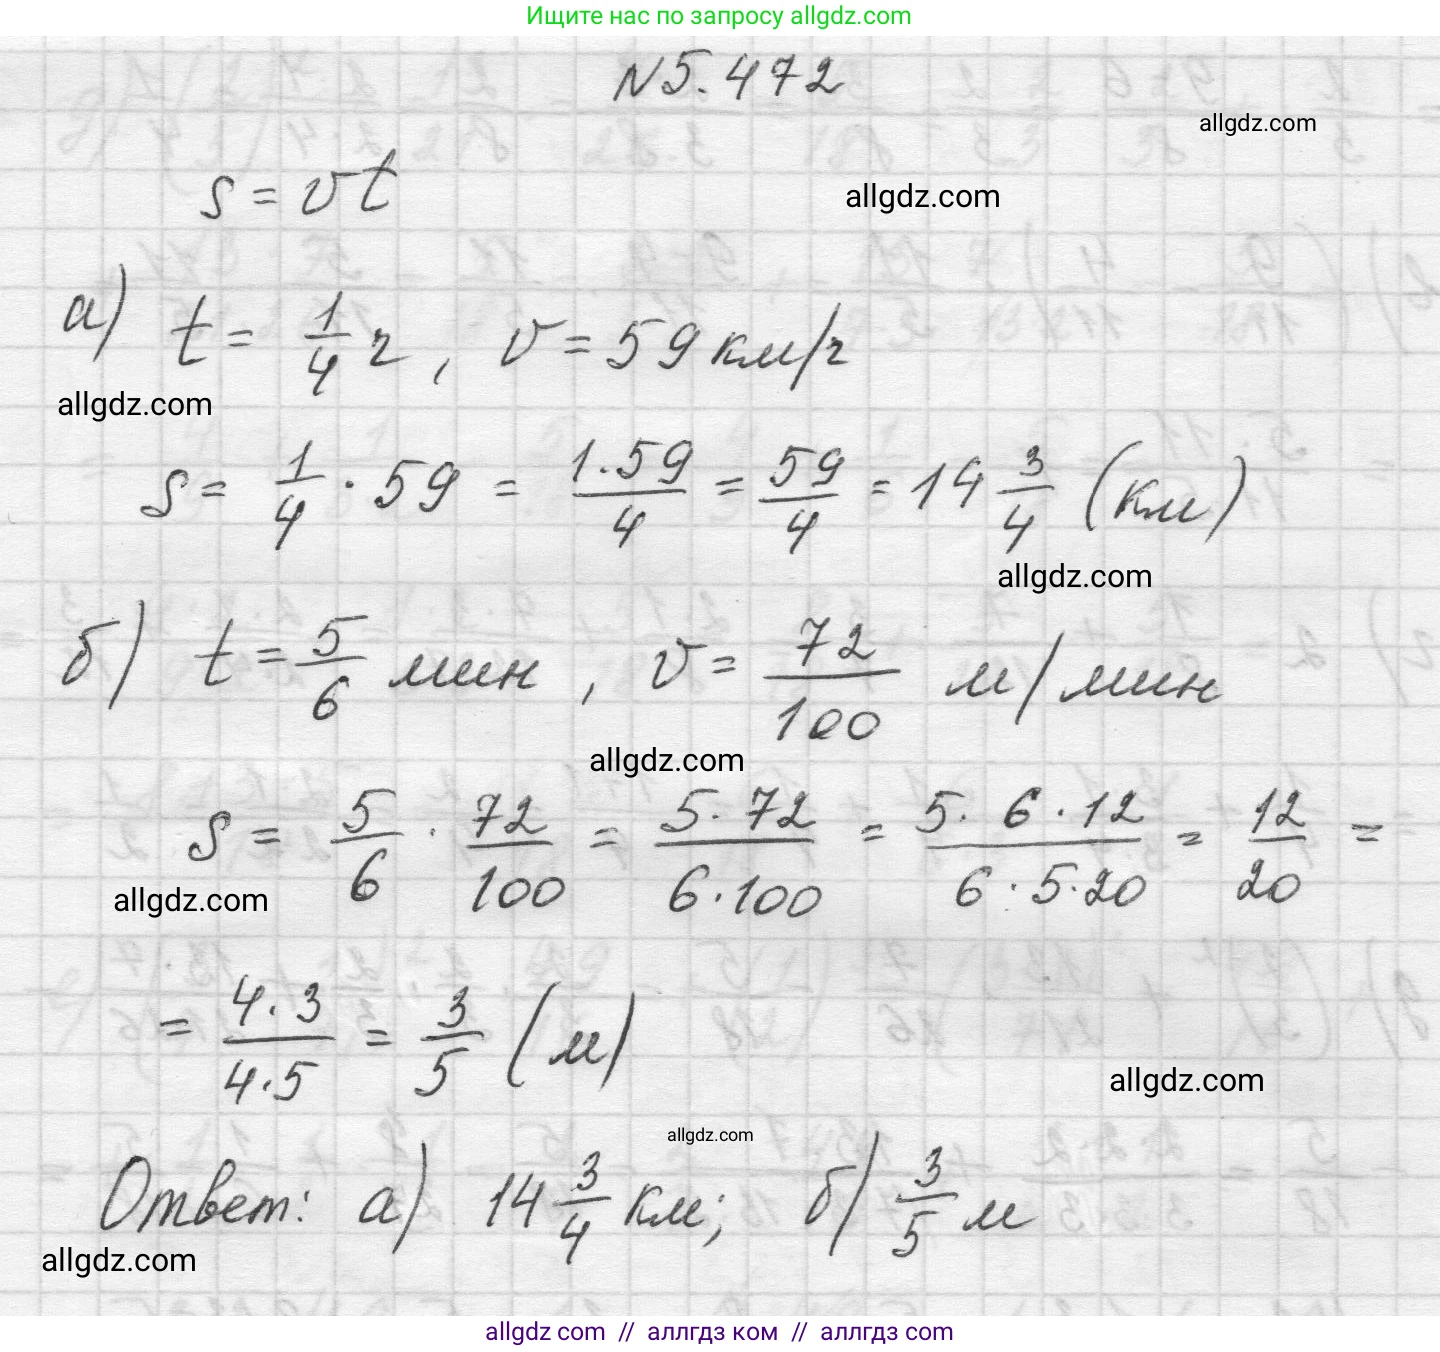 Ищите нас по запросу allgdz.com
N5.472
allgdz.com
s = vt
allgdz.com
а) t = 1/4 ч, v = 59 км/ч
allgdz.com
s = 1/4 · 59 = 1·59/4 = 59/4 = 14 3/4 (км)
allgdz.com
б) t = 5/6 мин, v = 72/100 м/мин
allgdz.com
s = 5/6 · 72/100 = 5·72/6·100 = 5·6·12/6·5·20 = 12/20 =
allgdz.com
= 4·3/4·5 = 3/5 (м)
allgdz.com
allgdz.com
Ответ: а) 14 3/4 км; б) 3/5 м
allgdz.com
allgdz com // аллгдз ком // аллгтз com